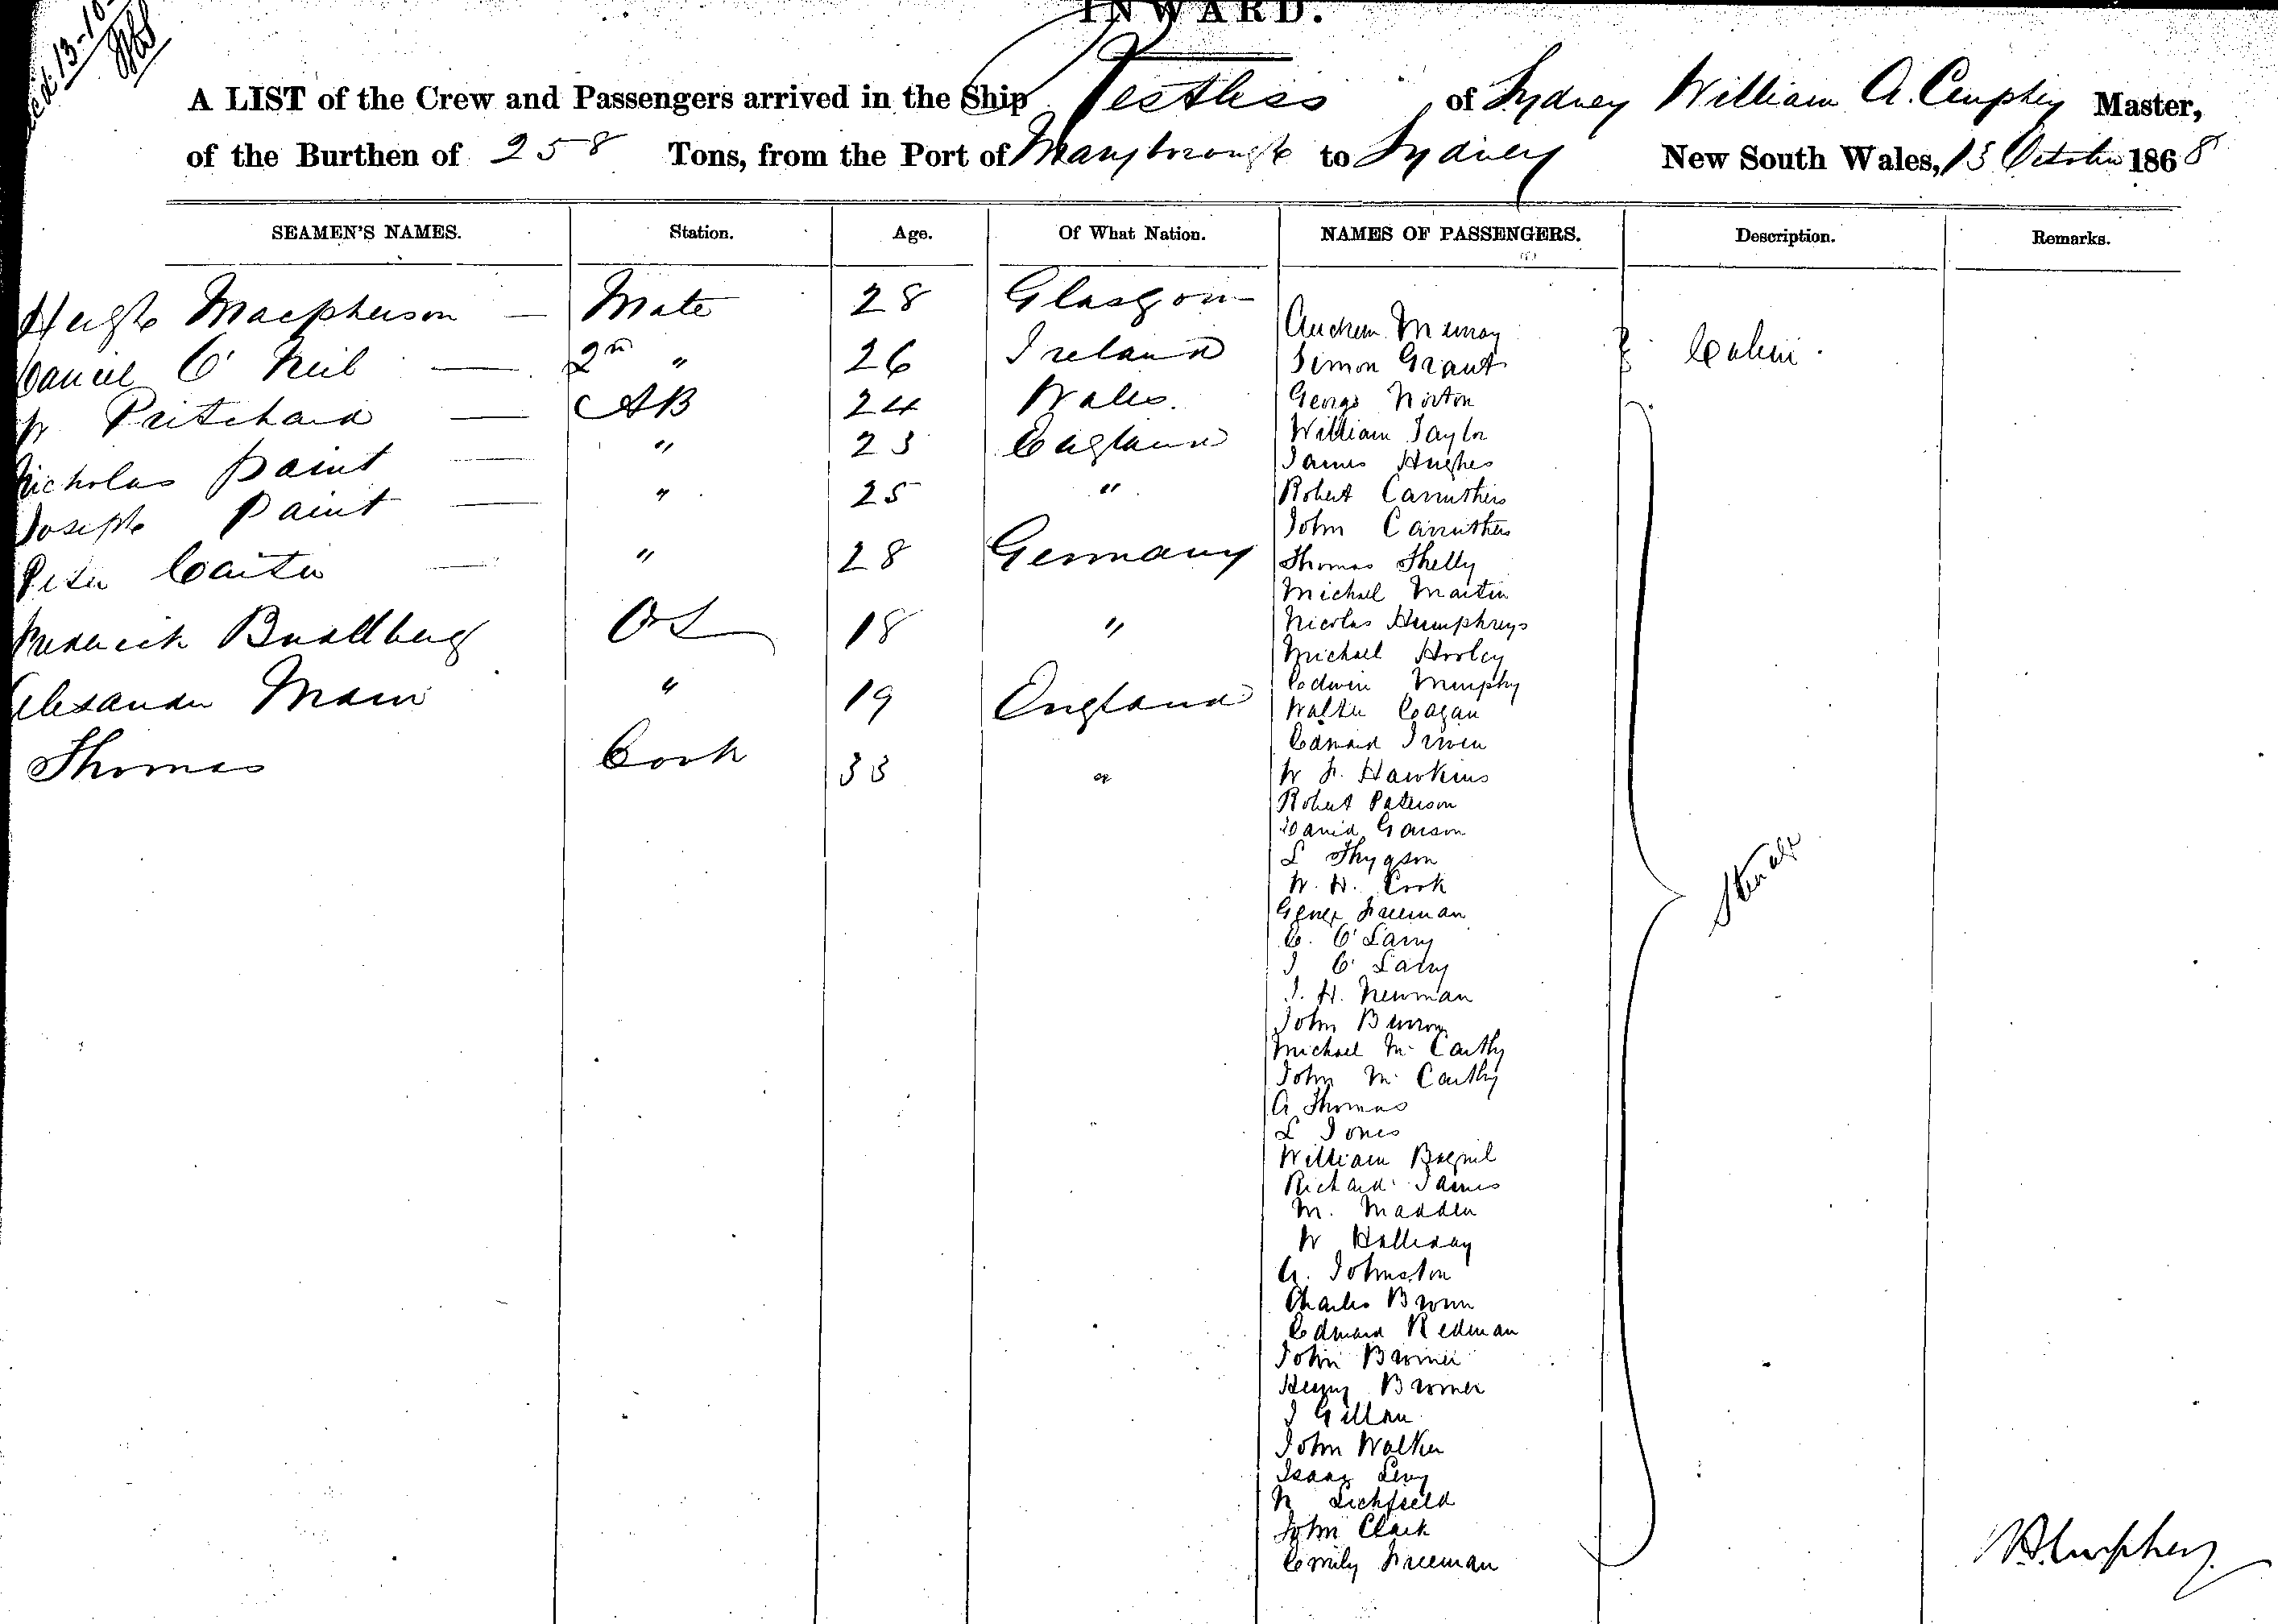 INWARD.
A LIST of the Crew and Passengers arrived in the Ship Restless of Sydney William A. Cumphey Master,
of the Burthen of 258 Tons, from the Port of Maryborough to Sydney New South Wales, 13 October 1868
SEAMEN'S NAMES. Station. Age. Of What Nation. NAMES OF PASSENGERS. Description. Remarks.
Hugh Macpherson — Mate 28 Glasgow
Daniel O'Neil — 2nd " 26 Ireland
W Pritchard — AB 24 Wales.
Nicholas Paint — " 23 England
Joseph Paint — " 25 "
Peter Carter — " 28 Germany
Frederick 18 "
Alexander " 19 England
Thomas Cook 33 "
Andrew Murray
Simon Grant
Cabin.
George Norton
William Taylor
James Hughes
Robert Carruthers
John Carruthers
Thomas Shelly
Michael Martin
Nicolas Humphreys
Michael Hooley
Edwin Murphy
Walter Eagan
Edward Irwen
W F. Hawkins
Robert Paterson
David Garson
L Thygson
W. H. Cook
George Freeman
E. O'Larry
J O'Larry
J. H. Newman
John Burrow
Michael Mc Carthy
John Mc Carthy
A Thomas
L Jones
William
Richard James
M. Madden
W Halliday
A. Johnston
Charles Brown
Edward Redman
John Browner
Henry Browner
J Gillan
John Walker
Isaac Levy
N Lichfield
John Clark
Emily Freeman
Steerage
W.A. Cumphey